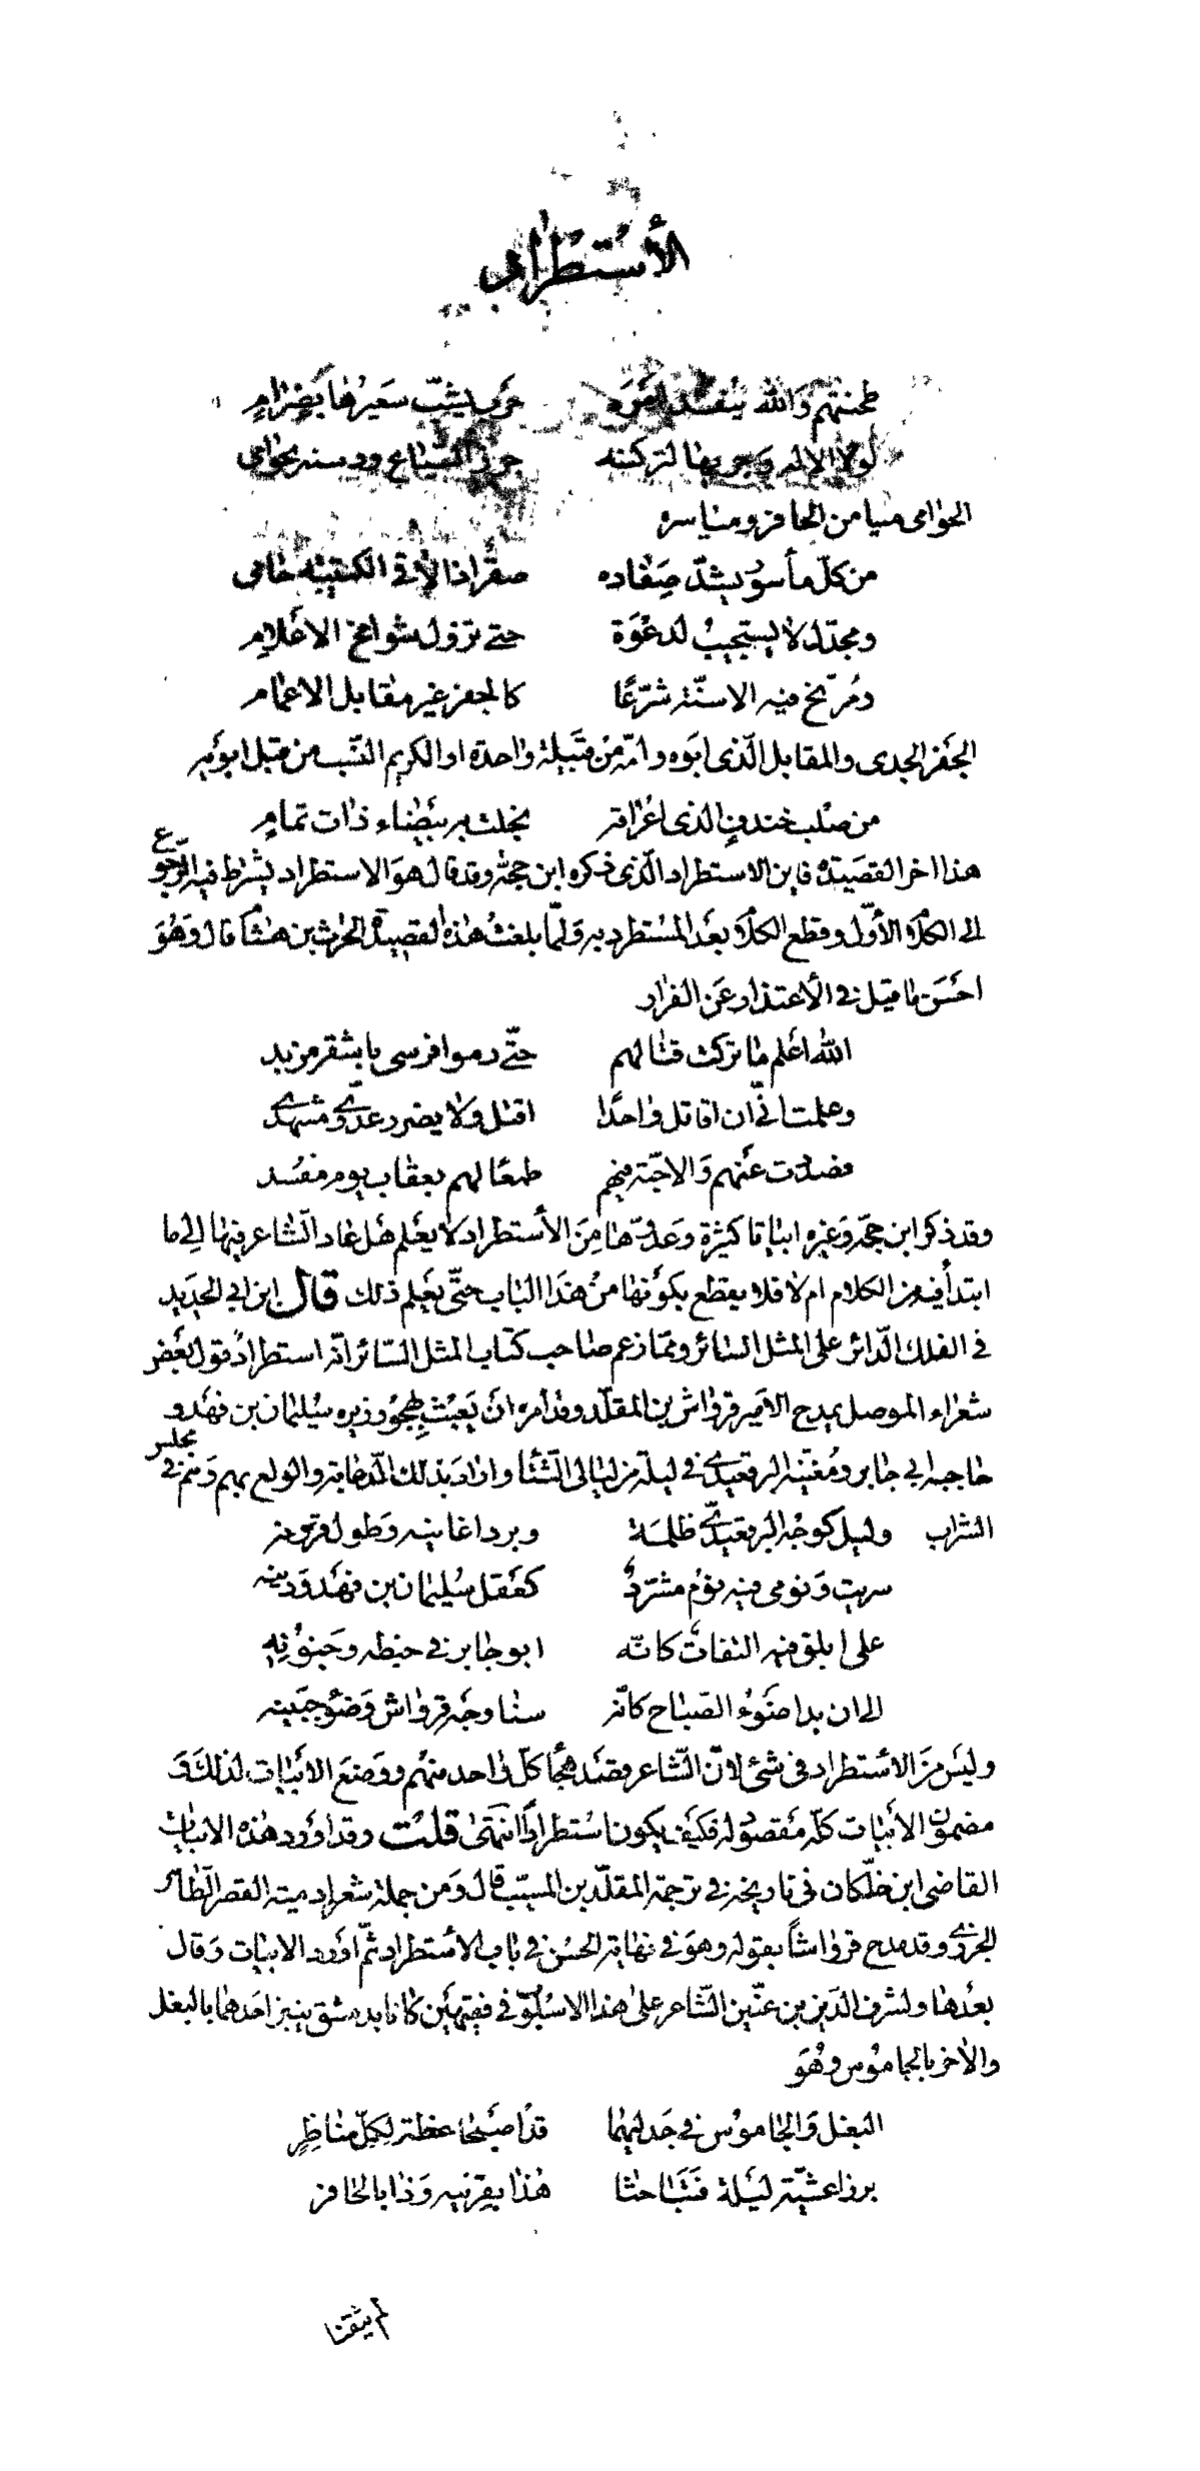 الأستطراد
طحنتهم والله ينفذ امره حرب يشبّ سعيرها بضرام
لولا الاله وجريها لتركنه جزر السّباع ودسنه بحوامى
الحوامى ميامن الحافر ومياسره
من كلّ مأسور يشدّ صفاده صقر اذا لاقى الكتيبة حامى
ومجدّل لا يستجيب لدعوة حتى تزول شوامخ الاعلام
كالجفر غير مقابل الاعمام
الجفر الجدى والمقابل الّذى ابوه وامّه من قبيلة واحدة او الكريم النّسب من قبل ابويه
من صلب خندف الذى اعراقه نجلت به بيضاء ذات تمام
هذا اخر القصيدة فاين الاستطراد الّذى ذكره ابن حجّة وقد قال هو الاستطراد يشترط فيه الرّجوع
الى الكلام الأوّل وقطع الكلام بعد المستطرد به ولمّا بلغت هذه القصيدة الحرث بن هشام قال وهو
احسن ما قيل في الأعتذار عن الفرار
الله اعلم ما تركت قتالهم حتّى رموا فرسى باشقر مزبد
وعلمت انّى ان اقاتل واحدا اقتل ولا يضرر عدّوى مشهدى
فصددت عنهم والاحبّة فيهم طمعا لهم بعقاب يوم مفسد
وقد ذكر ابن حجّة وغيره ابياتا كثيرة وعدّها من الأستطراد لا يعلم هل عاد الشاعر فيها الى ما
ابتدأ فيه من الكلام ام لا فلا يقطع بكونها من هذا الباب حتّى يعلم ذلك قال ابن ابى الحديد
فى الفلك الدّائر على المثل السائر وممّا زعم صاحب كتاب المثل السّائر انّه استطراد قول بعض
شعراء الموصل يمدح الامير قرواش بن المقلّد وقد امره ان يعبث بهجو وزيره سليمان بن فهد و
حاجبه ابى جابر ومغنّيه البرقعيدى في ليلة من ليالى الشّتا واراد بذلك الدّعابة والولع بهم وهم في مجلس
الشراب وليل كوجه البرقعيدىّ ظلمة وبرد اغانيه وطول قرونه
سريت ونومى فيه نوم مشرّد كعقل سليمان بن فهد ودينه
على ابلق فيه التفات كانّه ابو جابر في خبطه وجنونه
الى ان بدا ضوء الصّباح كانّه سنا وجه قرواش وضوء جبينه
وليس من الأستطراد فى شئ لانّ الشّاعر قصد هجا كلّ واحد منهم ووضع الأبيات لذلك و
مضمون الأبيات كلّه مقصود له فكيف يكون استطرادًا انتهى قلت وقد اورد هذه الابيات
القاضى ابن خلّكان فى تاريخه في ترجمة المقلّد بن المسيّب قال ومن جملة شعراء دمية القصر الطّاهر
الجزرى وقد مدح قرواشاً بقوله وهو فى نهاية الحسن في باب الأستطراد ثمّ اورد الابيات وقال
بعدها ولشرف الدّين بن عنّين الشّاعر على هذا الاسلوب فى فقيهين كانا بدمشق ينبز احدهما بالبغل
والاخر بالجاموس وهو
البغل والجاموس فى جدليهما قد اصبحا عظة لكلّ مناظر
برزا عشيّة ليلة فتباحثا هذا بقرنيه وذا بالحافر
لم يتقنا